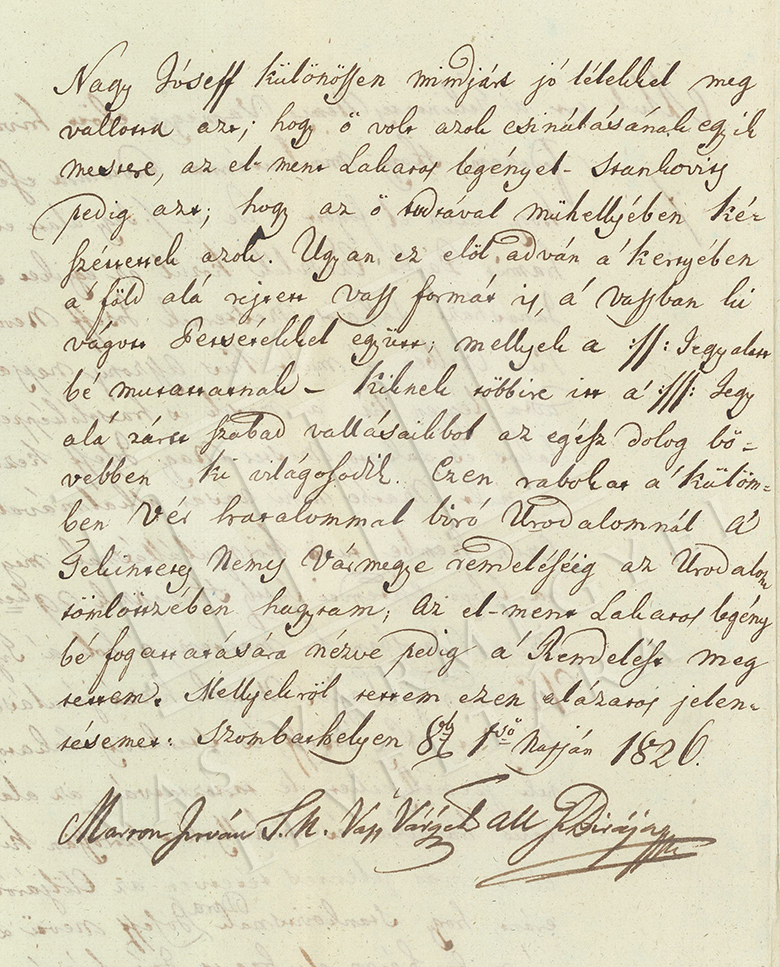 Nagy Jóseff különössen mindjárt jó lélekkel meg
vallotta azt; hogy ő volt azok csinálásának egyik
mestere, az el-ment Lakatos legényel - Stankovits
pedig azt; hogy az ő tudtával műhellyében ké-
szétettek azok. Ugyan ez elöl adván a' kertyében
a' föld alá rejtett vass formát is, a' vassban ki
vágott Petsétekkel együtt; mellyek a :/: Jegy alatt
bé mutattatnak - Kiknek többire itt a' ://: Jegy
alá zártt szabad vallásaikbol az egész dolog bő-
vebben ki világosodik. Ezen rabokat a' külöm-
ben Vér hatalommal biró Urodalomnál a'
Tekintetes Nemes Vármegye rendeléséig az Urodalom
tömlöttzében hagytam; az el-ment Lakatos legény
bé fogattatására nézve pedig a' Rendelést meg
tettem. Mellyekröl tettem ezen alázatos jelen-
tésemet: Szombathelyen 8br 1ső Napján 1826.
Marton István T. N. Vass Várgyek all Birája